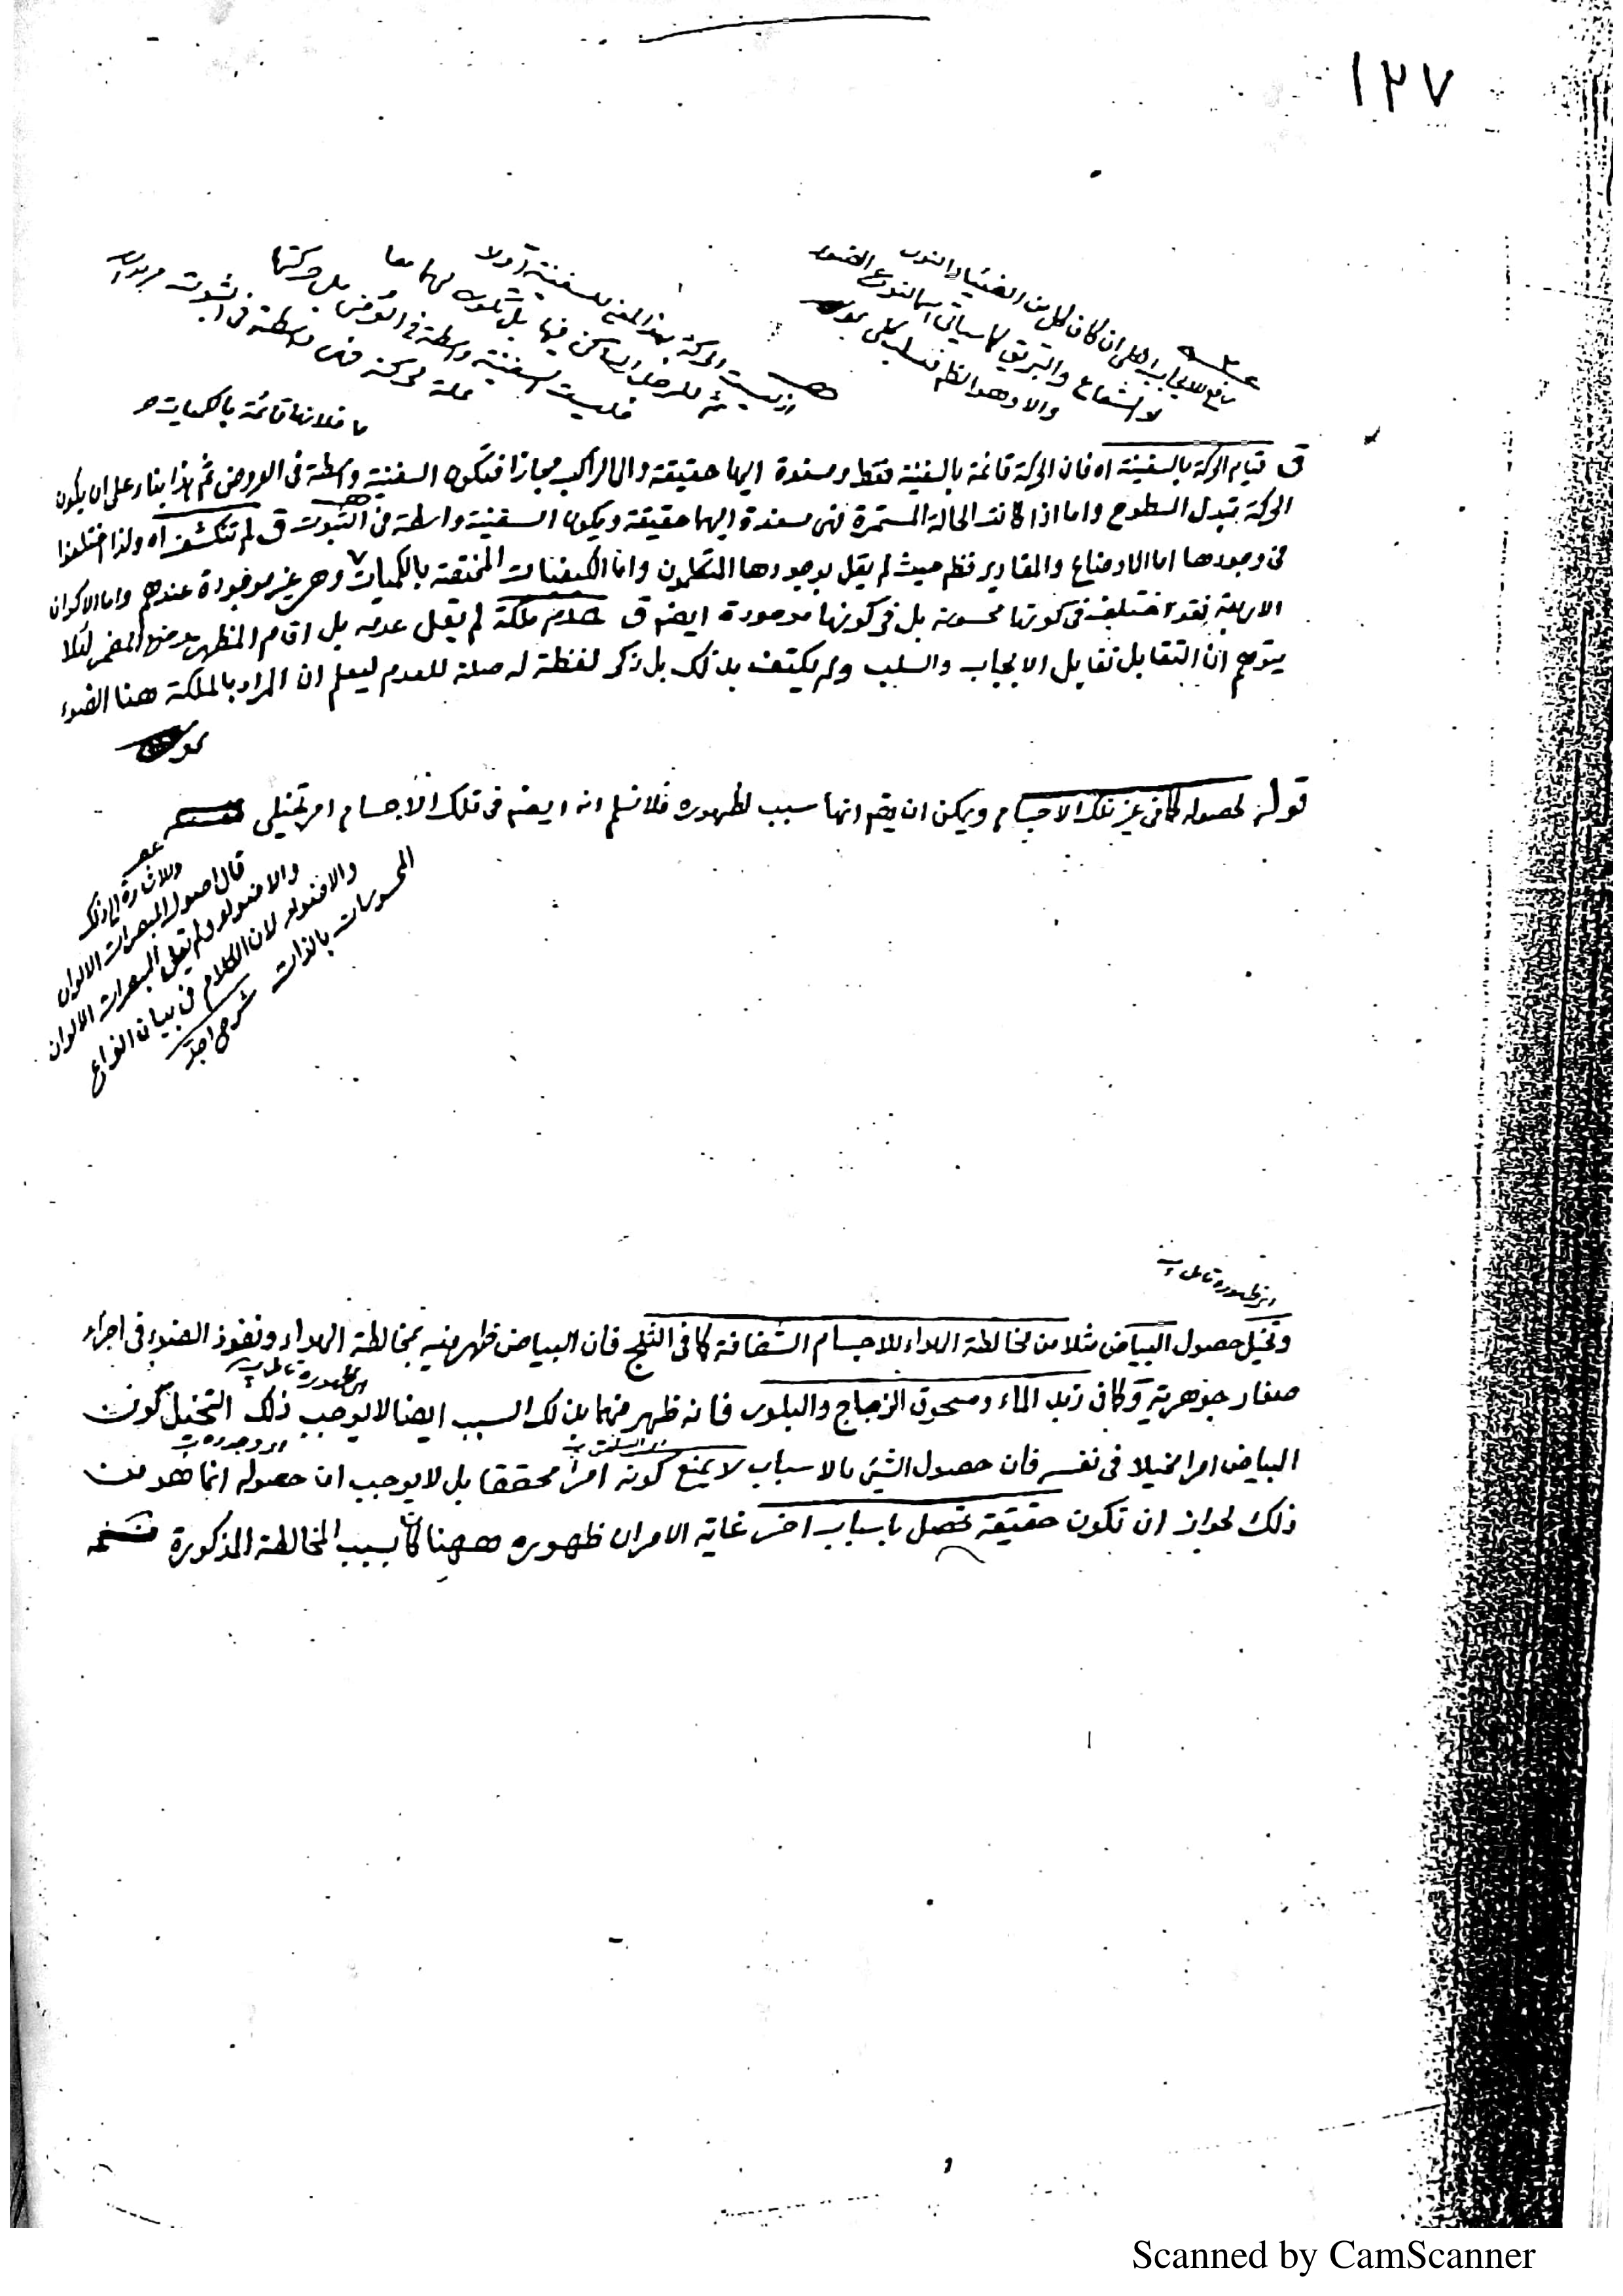 ١٢٧
مانع للايجاب اهلى ان كان كل من الضياء والنور
والشعاع والبريق كما سيأتى اسما لنوع الضوء
والا وهو الظ فسلب كلى
اذ ليست الحركة بهذا المعنى للسفينة اولا
ثم للرجل الساكن فيها بل تكون لهما معا
فليست السفينة واسطة فى العروض بل حركتها
علة لحركته فهى واسطة فى الثبوت
ما فلانها قائمة بالكميات
ق قيام الحركة بالسفينة اه فان الحركة قائمة بالسفينة فقط ومسندة اليها حقيقة والى الراكب مجازا فتكون السفينة واسطة فى العروض ثم هذا بناء على ان يكون
الحركة تبدل السطوح واما اذا كانت الحالة المستمرة فهى مسندة اليهما حقيقة ويكون السفينة واسطة فى الثبوت ق لم تنكشف اه ولذا اختلفوا
فى وجودها اما الاوضاع والمقادير فظم حيث لم يقل بوجودها المتكلمون واما الكيفيات المختصة بالكميات وهى غير موجودة عندهم واما الاكوان
الاربعة فقد اختلف فى كونها محسوسة بل فى كونها موجودة ايضا ق عدم ملكة لم يقل عدمه بل اقام المظهر موضع المضمر لئلا
يتوهم ان التقابل تقابل الايجاب والسلب ولم يكتف بذلك بل ذكر لفظة له صلة للعدم ليعلم ان المراد بالملكة هنا الضوء
قوله لحصوله كما فى غير تلك الاجسام ويمكن ان يقم انها سبب لظهوره فلا نسلم انه ايضا فى تلك الاجسام امر تخيلى
وللاشارة الى ذلك
قال اصول المبصرات الالوان
والاضواء ولم يقل المبصرات الالوان
والاضواء لان الكلام فى بيان انواع
المحسوسات بالذات
اى ظهوره تأمل
وتخيل حصول البياض مثلا من مخالطة الهواء للاجسام الشفافة كما فى الثلج فان البياض ظهر فيه بمخالطة الهواء ونفوذ الضوء فى اجزاء
صغار جوهرية وكما فى زبد الماء ومسحوق الزجاج والبلور فانه ظهر منهما بذلك السبب ايضا لا يوجب ذلك التخيل كون
البياض امرا مخيلا فى نفسه فان حصول الشئ بالاسباب لا يمنع كونه امرا محققا بل لا يوجب ان حصوله انما هو من
ذلك لجواز ان تكون حقيقة تحصل باسباب اخر غاية الامر ان ظهوره ههنا كان بسبب المخالطة المذكورة
Scanned by CamScanner